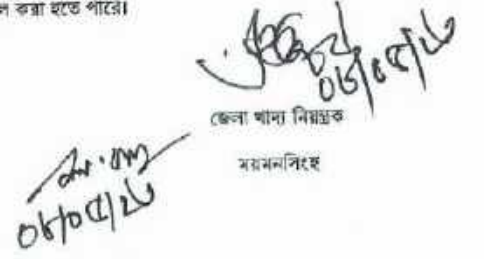 করা হতে পারে।
০৬/০৫/২৬
জেলা খাদ্য নিয়ন্ত্রক
ময়মনসিংহ
০৬/০৫/২৬